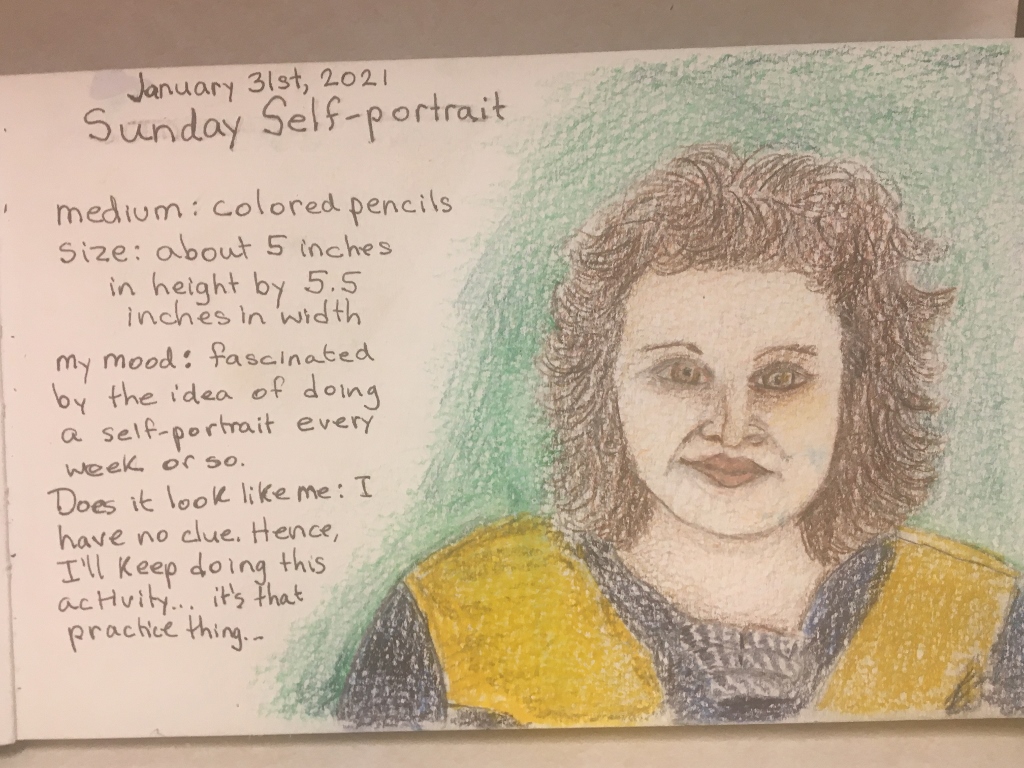 January 31st, 2021
Sunday Self-portrait
medium: colored pencils
size: about 5 inches
in height by 5.5
inches in width
my mood: fascinated
by the idea of doing
a self-portrait every
week or so.
Does it look like me: I
have no clue. Hence,
I'll keep doing this
activity... it's that
practice thing...